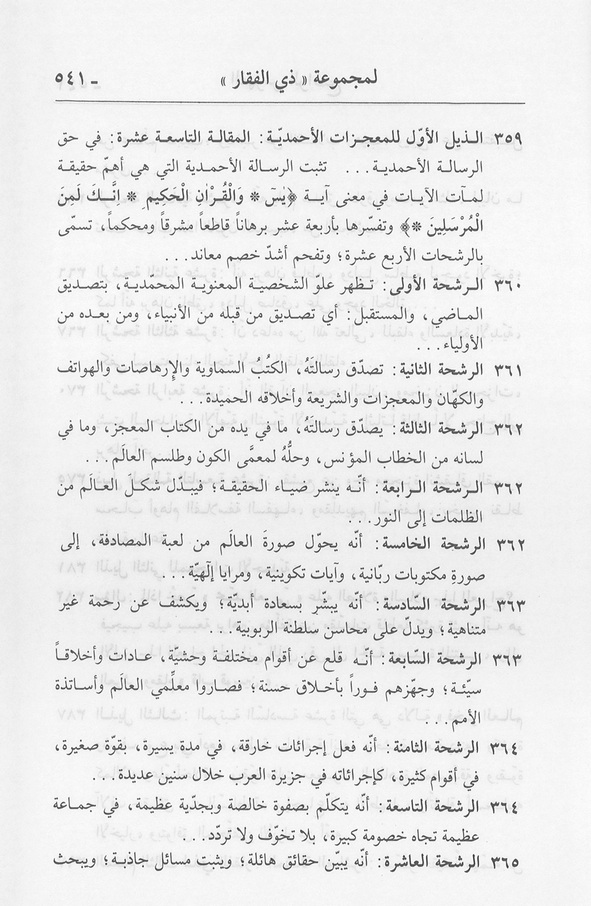 لمجموعة « ذي الفقار » ـ ٥٤١
٣٥٩ الـذيل الأوّل للمعجـزات الأحمديّـة : المقالـة التاسعـة عشـرة : في حق
الرسـالـة الأحمـديـة . . . تثبت الرسـالة الأحمدية التي هي أهمّ حقيقـة
لمـآت الآيـات في معنى آيـة ﴿يٰسٓ * وَالْقُرْاٰنِ الْحَكِيمِ * اِنَّـكَ لَمِنَ
الْمُرْسَلِينَ *﴾ وتفسّرها بأربعة عشر برهاناً قاطعاً مشرقاً ومحكماً، تسمّى
بالرشحات الأربع عشرة؛ وتفحم أشدّ خصم معاند . . .
٣٦٠ الـرشحة الأولى : تـظهر علوّ الشخصيـة المعنويـة المحمّديـة، بتصديق
الماضي، والمستقبل : أي تصديق من قبله من الأنبياء، ومن بعده من
الأولياء . . .
٣٦١ الرشحة الثانية : تصدّق رسالتَهُ، الكتُبُ السماوية والإرهاصات والهواتف
والكهّان والمعجزات والشريعة وأخلاقه الحميدة . . .
٣٦٢ الرشحة الثالثة : يصدّق رسالتَهُ، ما في يده من الكتاب المعجز، وما في
لسانه من الخطاب المؤنس، وحلُّهُ لمعمَّى الكون وطلسم العالَم . . .
٣٦٢ الـرشحة الـرابعة : أنّـه ينشر ضيـاء الحقيقـة؛ فيبـدّل شكـلَ العـالَم من
الظلمات إلى النور . . .
٣٦٢ الرشحة الخامسة : أنّه يحوّل صورةَ العالَم من لعبة المصادفة، إلى
صورةِ مكتوبات ربّانية، وآيات تكوينية، ومرايا إلٰهيّة . . .
٣٦٣ الرشحة السّادسة : أنّه يبشّر بسعادة أبديّة؛ ويكشف عن رحمة غير
متناهية؛ ويدلّ على محاسن سلطنة الربوبية . . .
٣٦٣ الرشحة السّابعة : أنّـه قلع عن أقوام مختلفـة وحشيّة، عـادات وأخلاقـاً
سيّئـة؛ وجهّزهم فـوراً بأخـلاق حسنة؛ فصـاروا معلِّمي العالَم وأسـاتذة
الأمم . . .
٣٦٤ الرشحة الثامنة : أنّه فعل إجرائات خارقة، في مدة يسيرة، بقوّة صغيرة،
في أقوام كثيرة، كإجرائاته في جزيرة العرب خلال سنين عديدة . . .
٣٦٤ الرشحة التاسعة : أنّه يتكلّم بصفوة خالصة وبجدّية عظيمة، في جماعة
عظيمة تجاه خصومة كبيرة، بلا تخوّف ولا تردّد . . .
٣٦٥ الرشحة العاشرة : أنّه يبيّن حقائق هائلة؛ ويثبت مسائل جاذبة؛ ويبحث